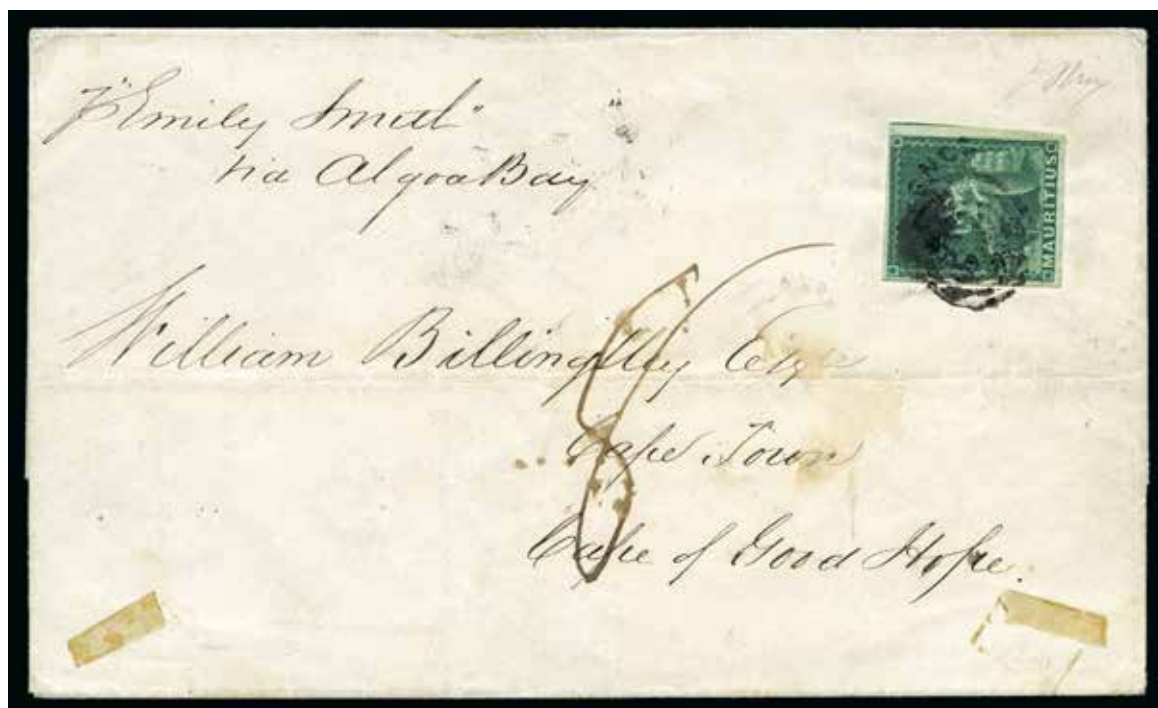 p "Emily Smith"
via Algoa Bay
MAURITIUS
William Billingsley Esqr
8
Cape Town
Cape of Good Hope.